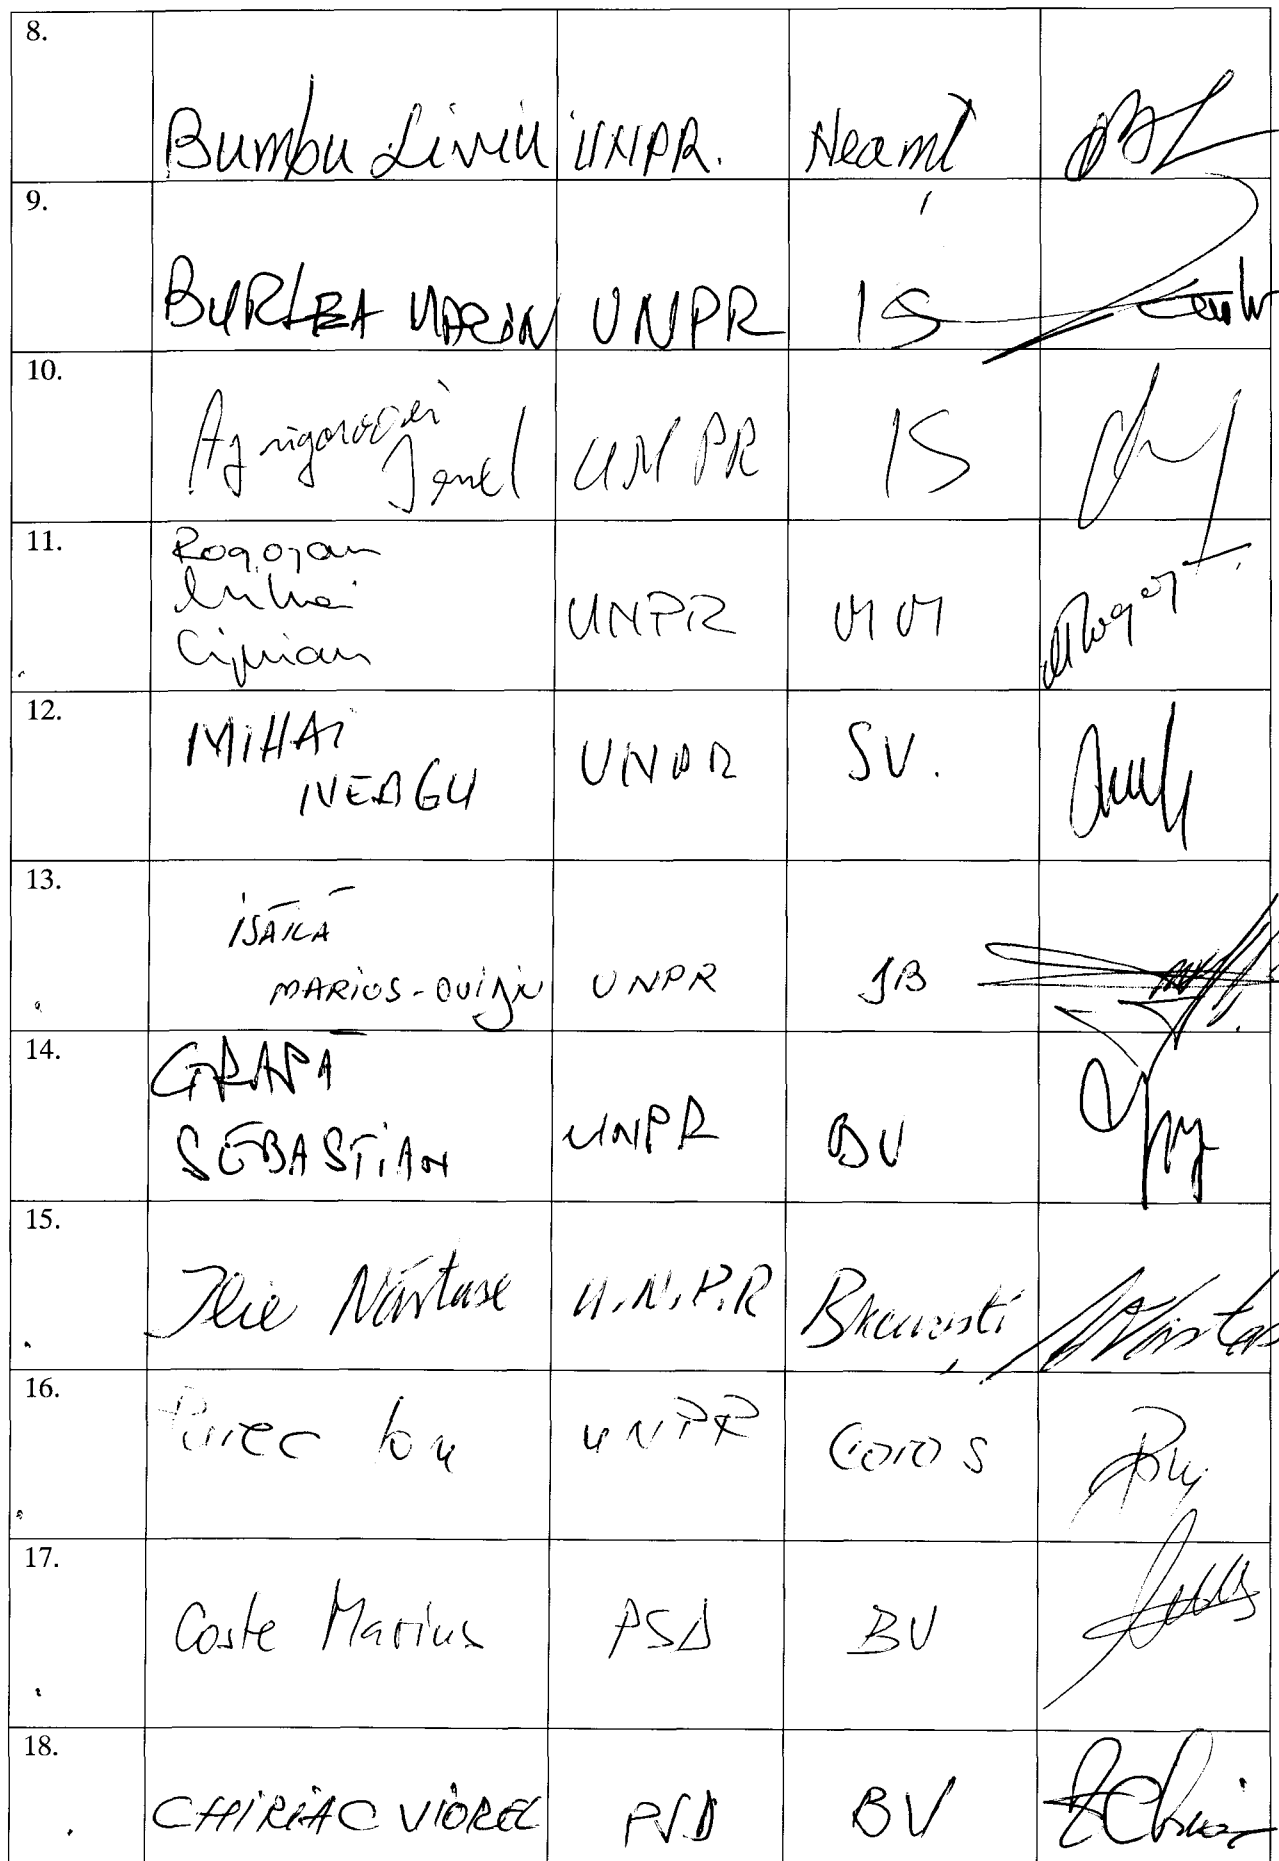 8.
Bumbu Liviu UNPR. Neamț
9.
BURLEA MARIN UNPR IS
10.
Agrigoroaei
Ionel UNPR IS
11.
Rogojan
Mihai
Ciprian UNPR MM
12.
MIHAI
NEAGU UNPR SV.
13.
ISĂILĂ
MARIUS-OVIDIU UNPR JB
14.
GRAPĂ
SEBASTIAN UNPR BV
15.
Ilie Năstase U.N.P.R București
16.
Purec Ion UNPR
17.
Coste Marius PSD BV
18.
CHIRIAC VIOREL PSD BV